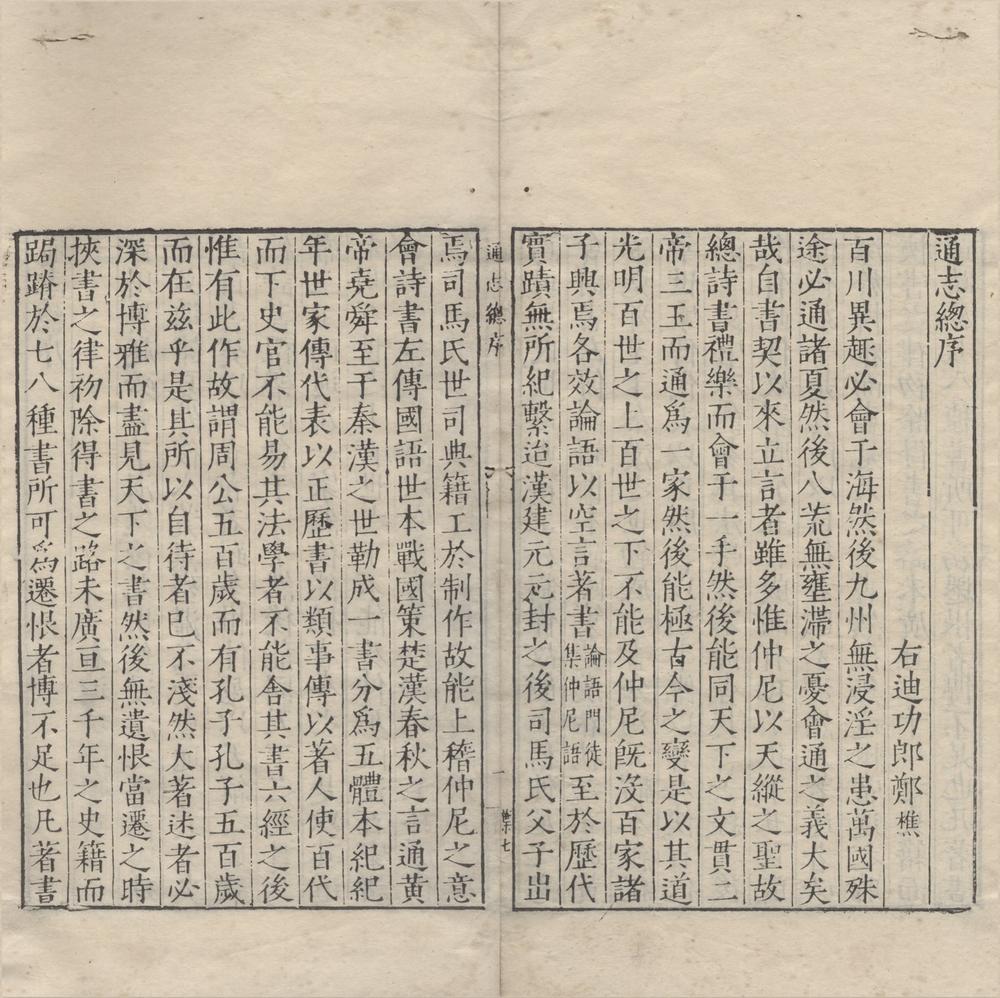 通志總序
右迪功郎鄭樵
百川異趣必會于海然後九州無浸淫之患萬國殊
途必通諸夏然後八荒無壅滯之憂會通之義大矣
哉自書契以來立言者雖多惟仲尼以天縱之聖故
總詩書禮樂而會于一手然後能同天下之文貫二
帝三王而通爲一家然後能極古今之變是以其道
光明百世之上百世之下不能及仲尼旣沒百家諸
子興焉各效論語以空言著書論語門徒集仲尼語至於歷代
實蹟無所紀繫迨漢建元元封之後司馬氏父子出
通志總序
一
焉司馬氏世司典籍工於制作故能上稽仲尼之意
會詩書左傳國語世本戰國策楚漢春秋之言通黃
帝堯舜至于秦漢之世勒成一書分爲五體本紀紀
年世家傳代表以正歷書以類事傳以著人使百代
而下史官不能易其法學者不能舍其書六經之後
惟有此作故謂周公五百歲而有孔子孔子五百歲
而在茲乎是其所以自待者已不淺然大著述者必
深於博雅而盡見天下之書然後無遺恨當遷之時
挾書之律初除得書之路未廣亘三千年之史籍而
跼蹐於七八種書所可爲遷恨者博不足也凡著書